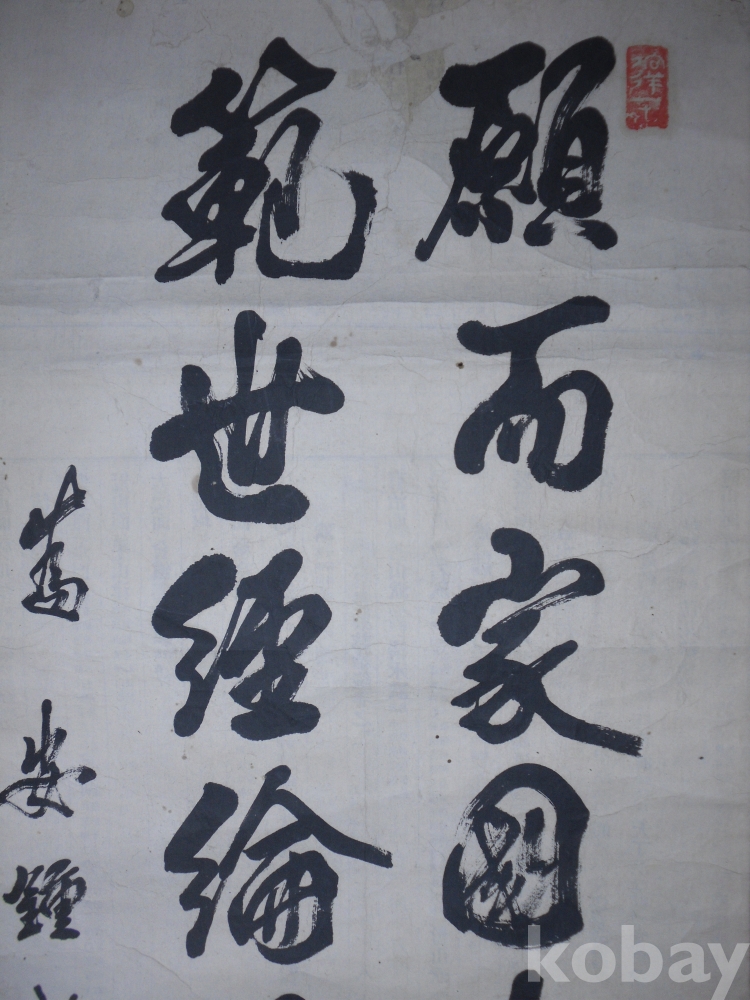 願而家國
範世經綸
為安鍾
kobay